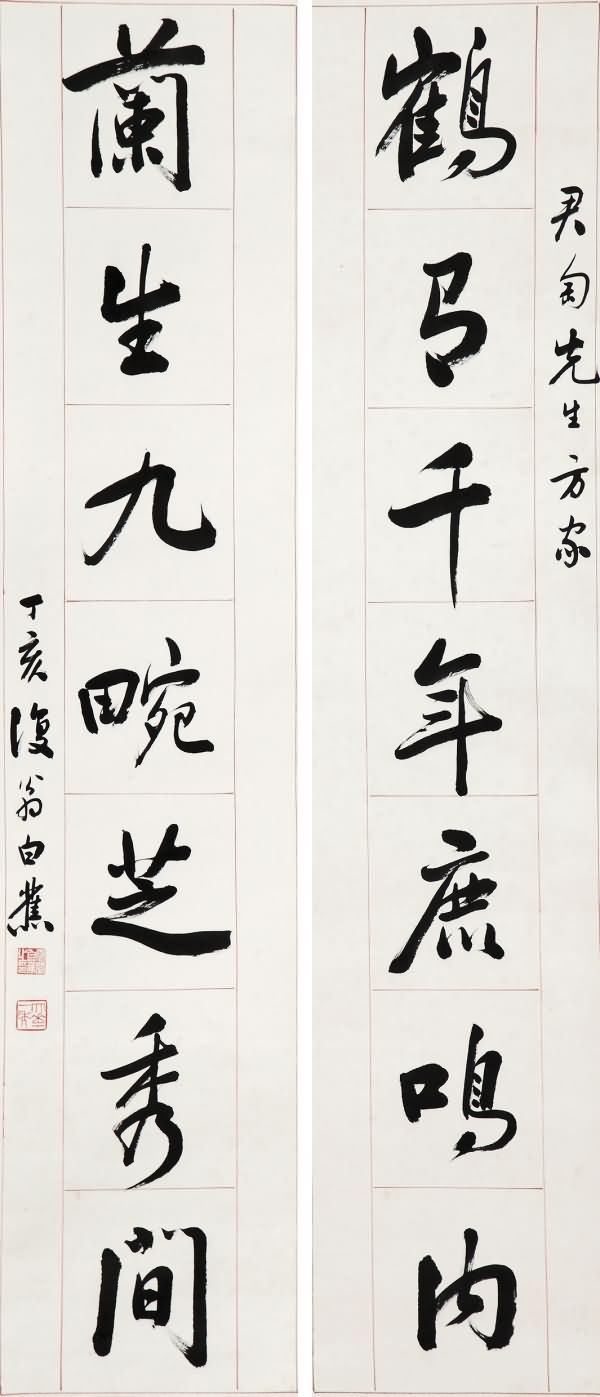 君匋先生方家
鶴千年鹿鳴内
蘭生九畹芝秀間
丁亥復翁白蕉